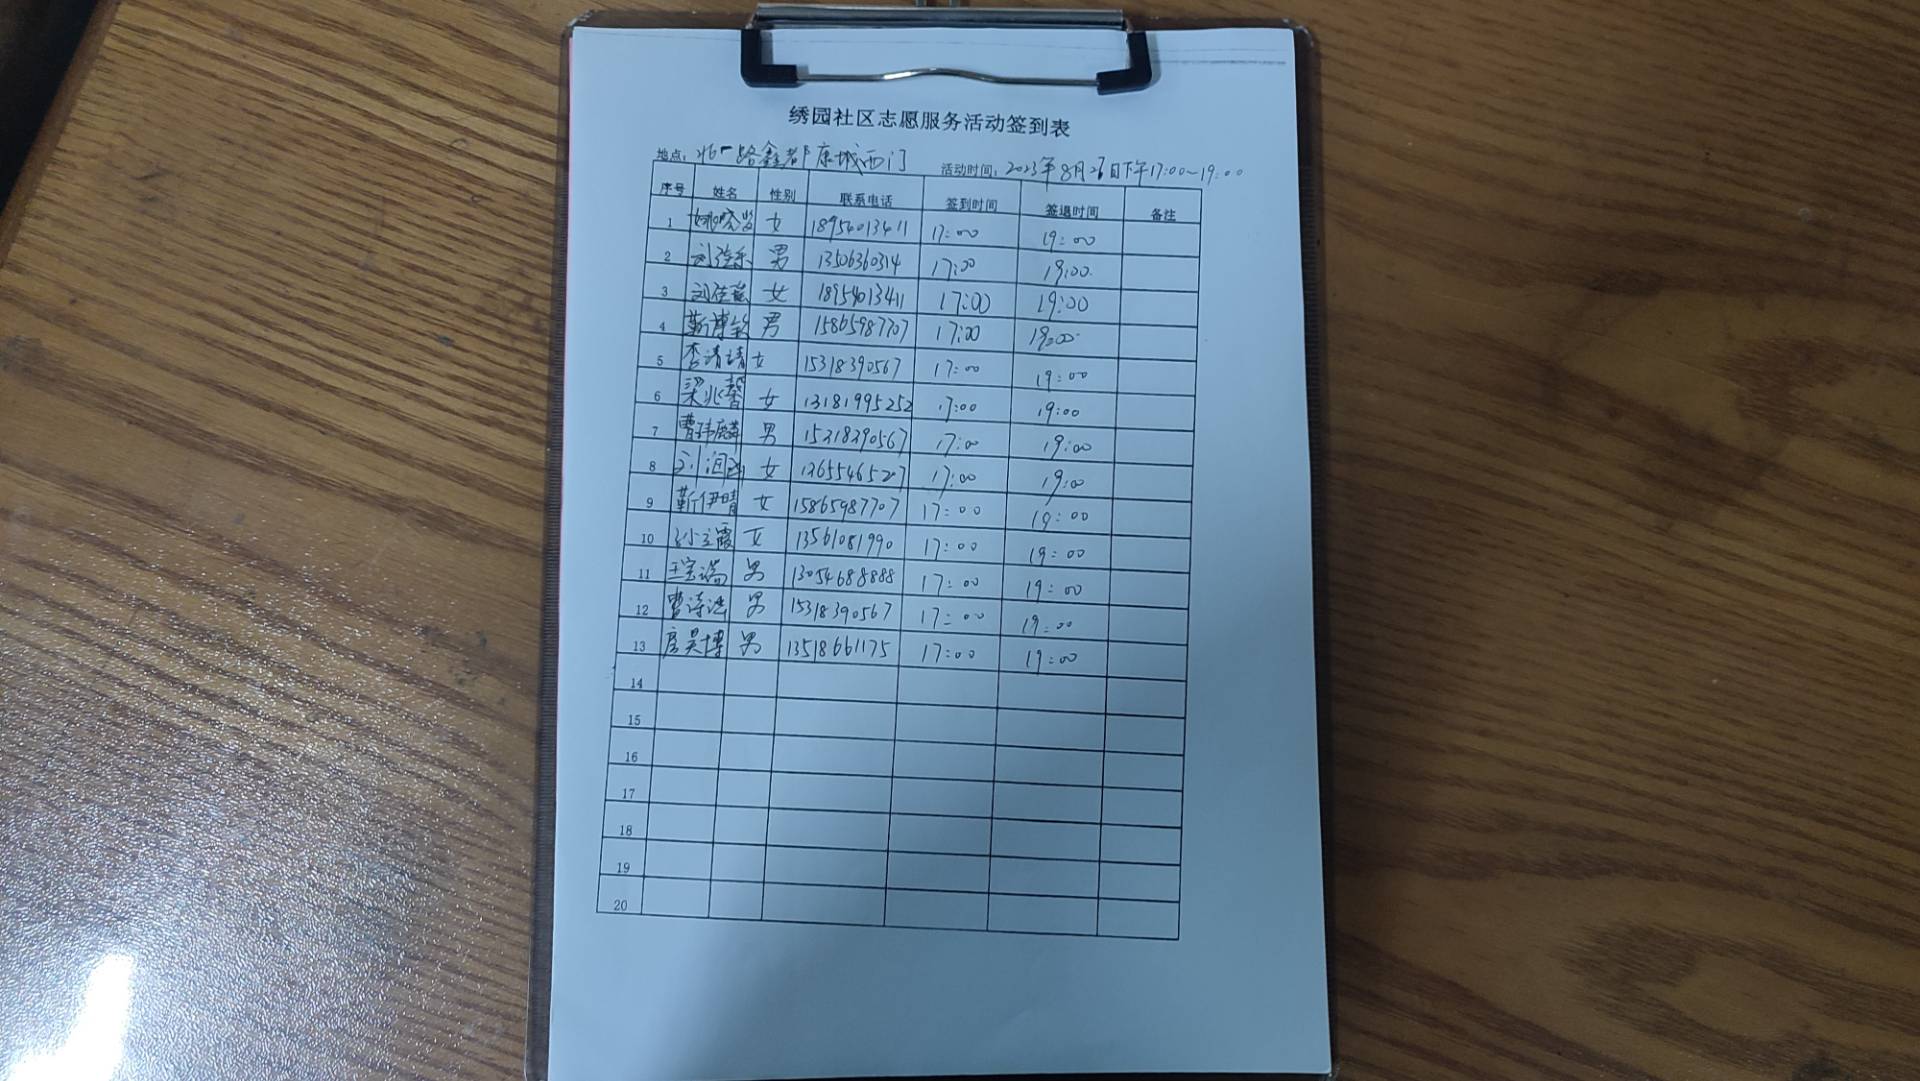 绣园社区志愿服务活动签到表
地点：北一路鑫都康城西门 活动时间：2023年8月26日下午17:00~19:00
序号 姓名 性别 联系电话 签到时间 签退时间 备注
1 女 18954013411 17:00 19:00
2 男 13506360314 17:00 19:00
3 女 18954013411 17:00 19:00
4 靳博 男 15865987707 17:00 19:00
5 李清靖 女 15318390567 17:00 19:00
6 梁兆馨 女 13181995252 17:00 19:00
7 曹玮麟 男 15318390567 17:00 19:00
8 刘 女 17:00 19:00
9 靳伊晴 女 15865987707 17:00 19:00
10 孙立霞 女 13561081990 17:00 19:00
11 王宝瑞 男 13054688888 17:00 19:00
12 曹 男 15318390567 17:00 19:00
13 房昊博 男 13518661175 17:00 19:00
14
15
16
17
18
19
20